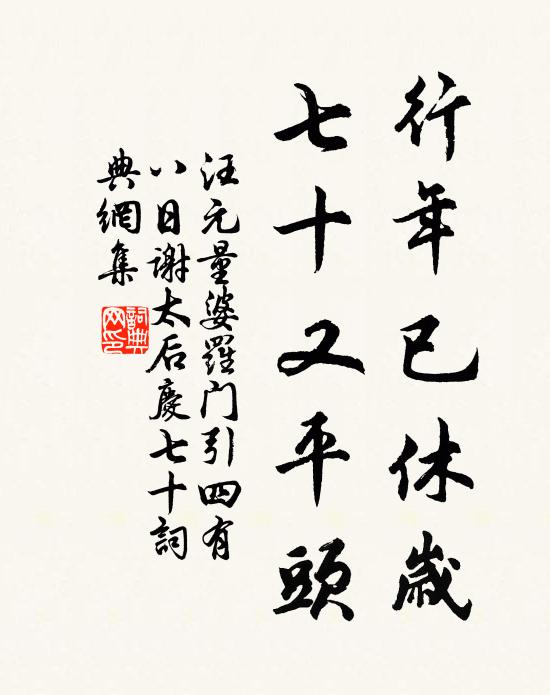 行年已休歲
七十又平頭
汪元量婆羅門引四有
八日謝太后慶七十詞
典網集
詞典网印